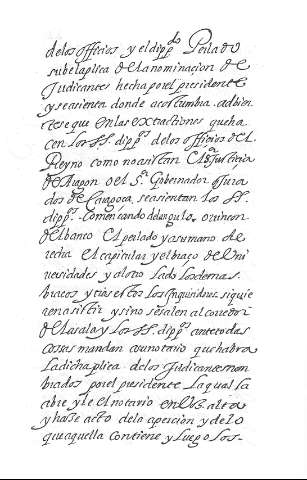 delos officios y el dipp.do Perlado
sube la plica dela nominaçion de
Judicantes hecha por el presidente
y se asienta donde acostumbra advien
tese que en las extractiones que ha
cen los SS. dipp.s delos officios del
Reyno como no asistan el Justicia
de Aragon o el S.r Gobernador o Jura
dos de Çaragoça, se asientan los SS.
dipp.s començando del angulo o rincon
del banco el perlado y a su mano de
recha el capitular y el braço de Uni
uersidades y al otro lado los demas
braços y tras estos los Inquiridores si quie
ren asistir y sino se salen al corredor
de la sala y los SS. dipp.s ante todas
cossas mandan a un notario que habra
la dicha plica delos Judicantes nom
brados por el presidente la qual la
abre y lee el notario en voz alta
y haze acto dela apercion y de lo
que aquella contiene y luego los